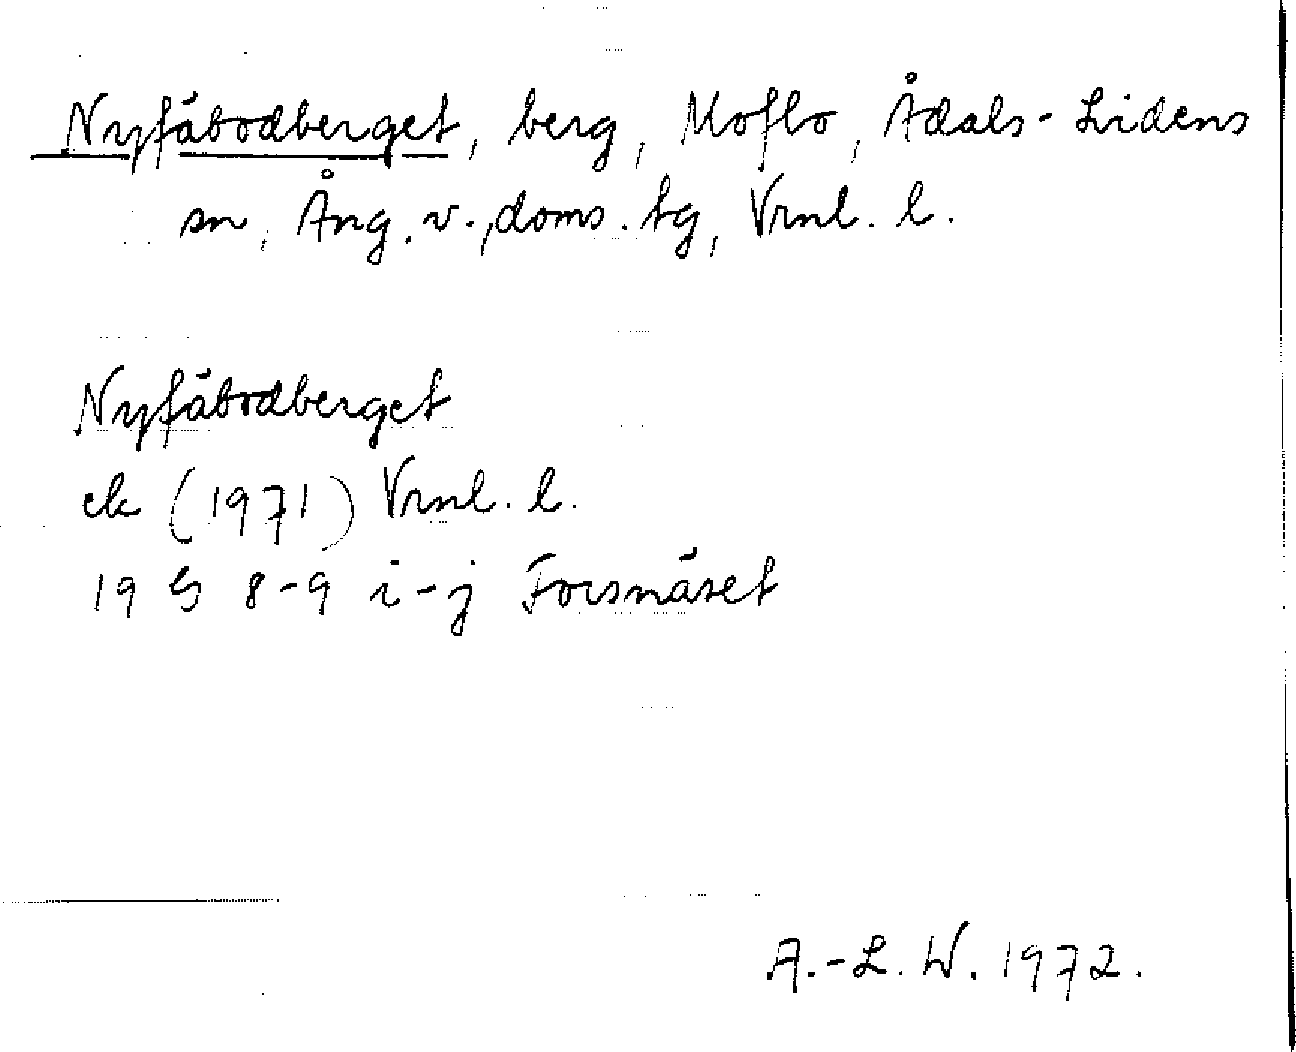 Nyfäbodberget, berg, Moflo, Ådals-Lidens
sn, Ång. v., doms. tg, Vrnl. l.
Nyfäbodberget
ek (1971) Vrnl. l.
19 G 8-9 i-j Forsnäset
A.-L. W. 1972.